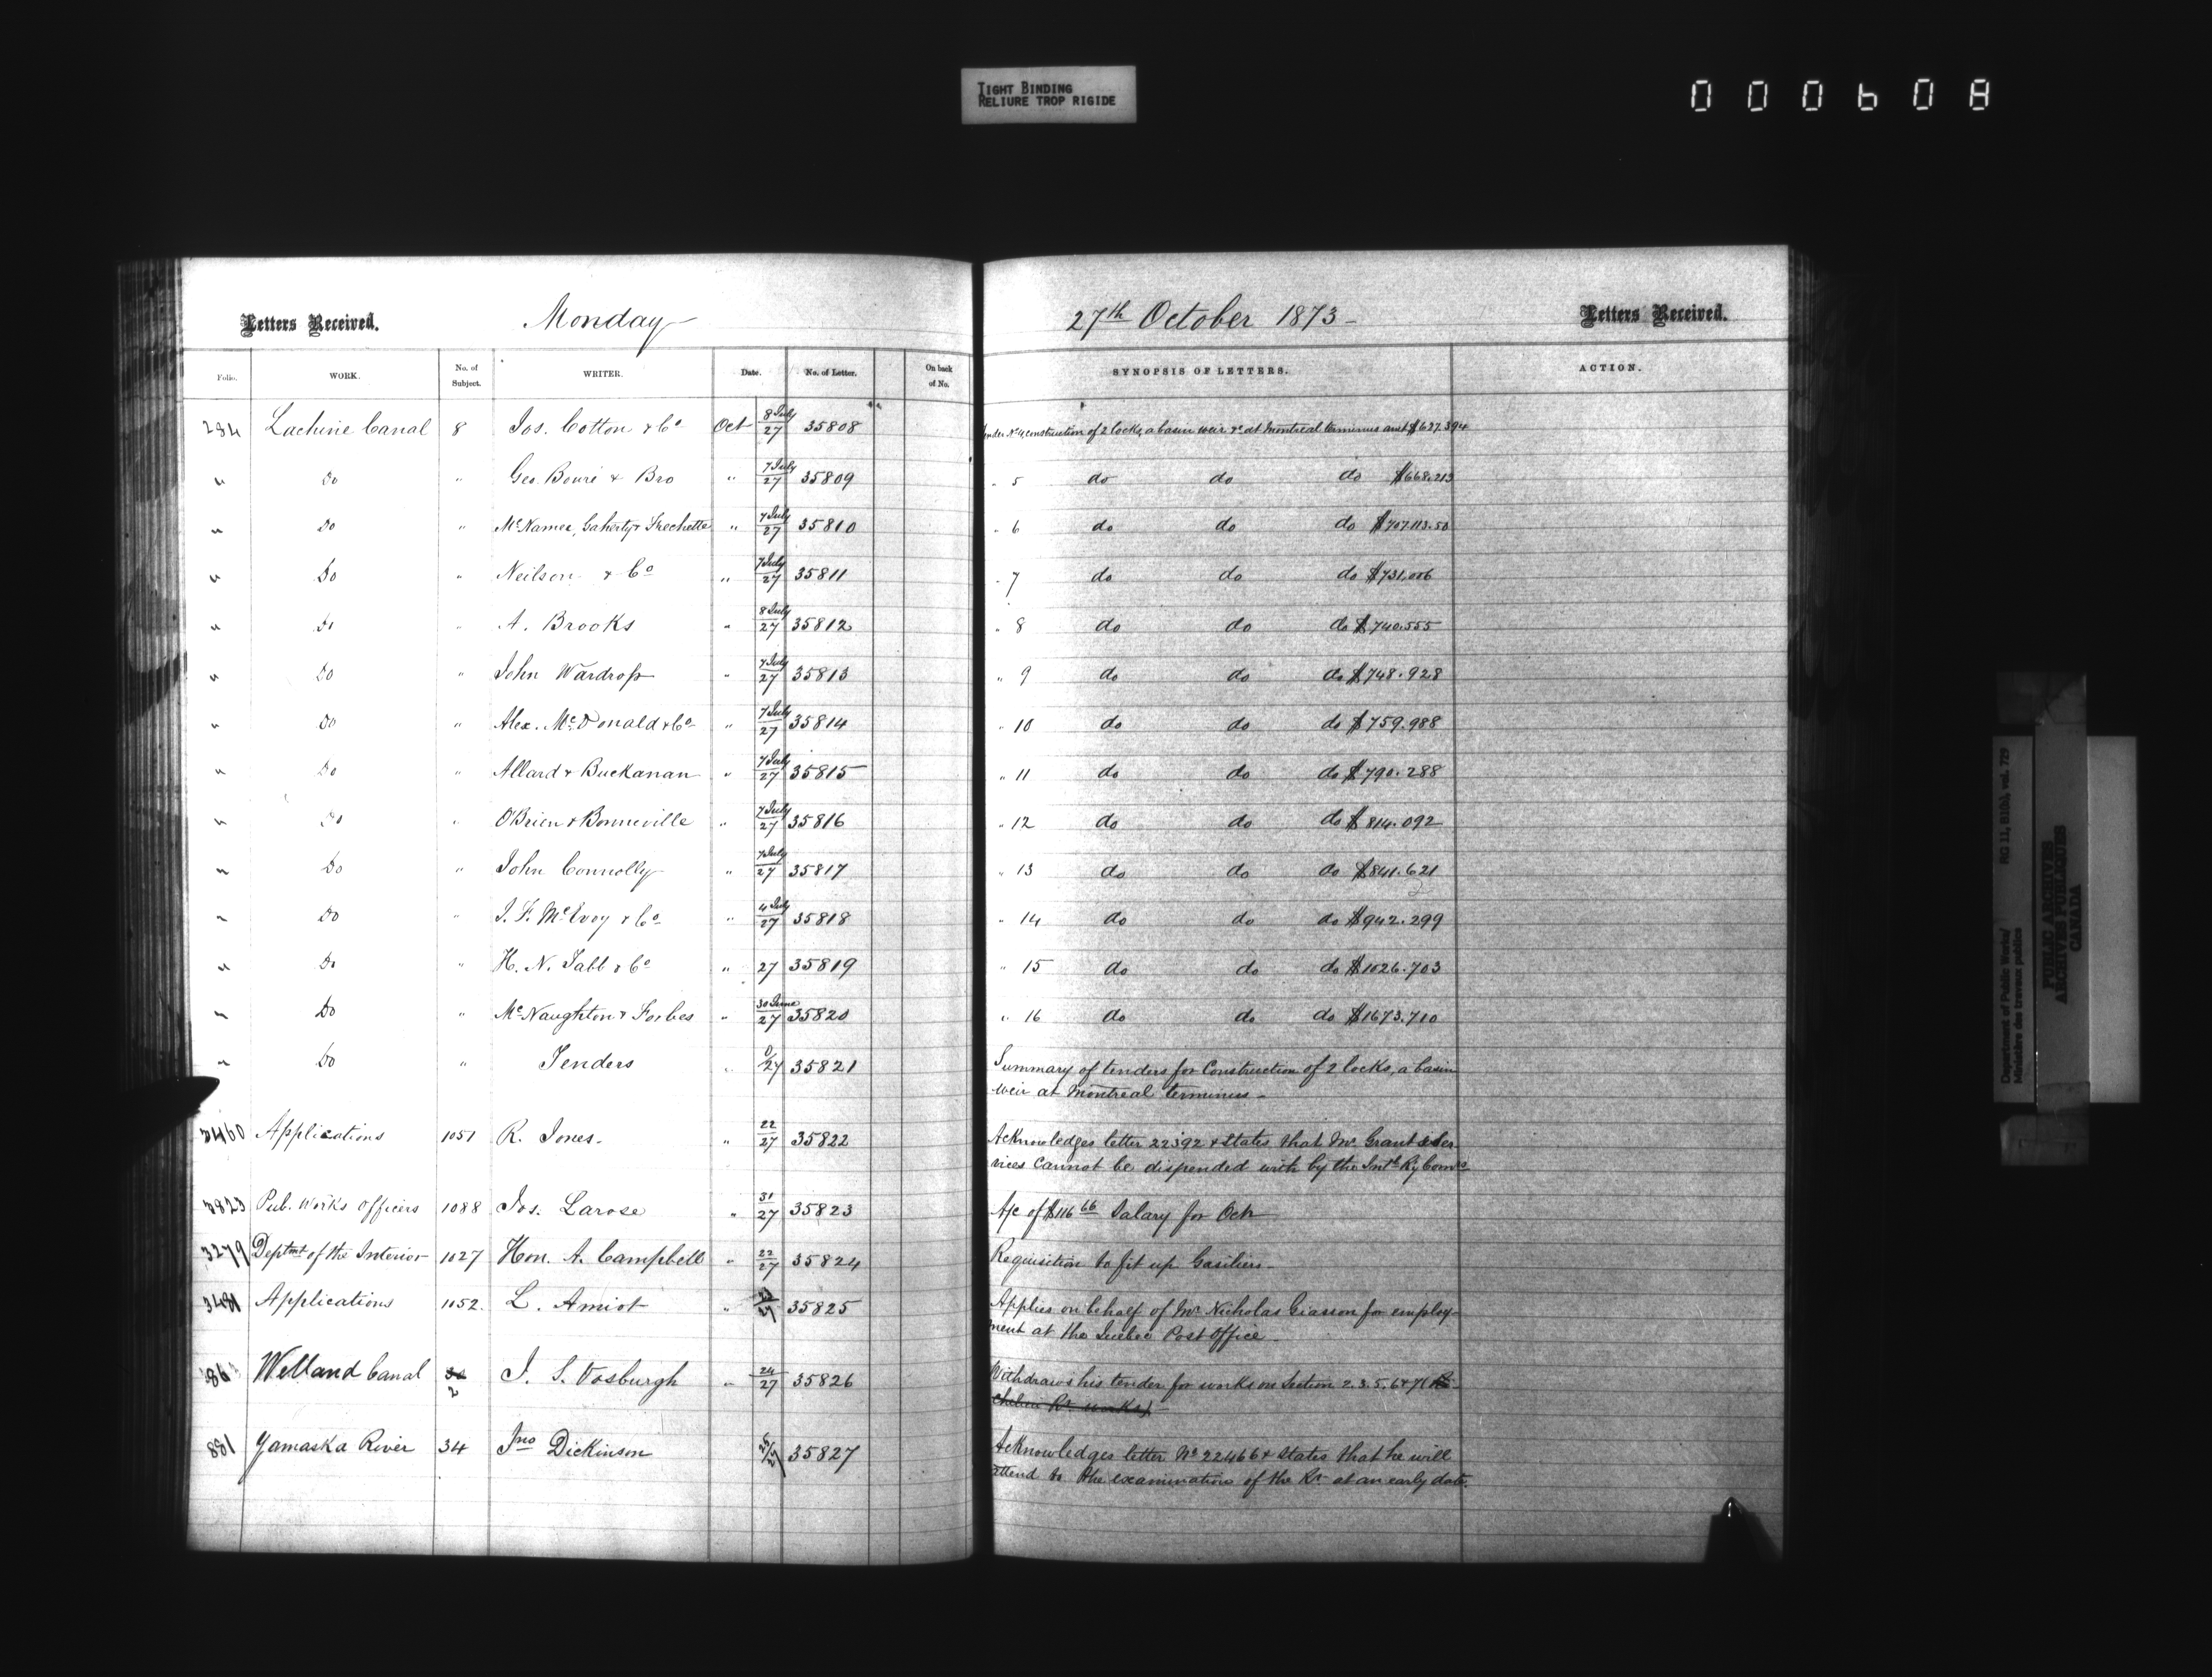 TIGHT BINDING
RELIURE TROP RIGIDE
000608
Letters Received. Monday
Folio. WORK. No. of Subject. WRITER. Date. No. of Letter. On back of No.
284 Lachine Canal 8 Jos. Cotton & Co Oct 8 July/27 35808
" Do " Geo. Bourié & Bro " 7 July/27 35809
" Do " McNamee, Gaherty & Frechette " 7 July/27 35810
" Do " Neilson & Co " 7 July/27 35811
" Do " A. Brooks " 8 July/27 35812
" Do " John Wardrop " 7 July/27 35813
" Do " Alex. McDonald & Co " 7 July/27 35814
" Do " Allard & Buckanan " 7 July/27 35815
" Do " O'Brien & Bonneville " 7 July/27 35816
" Do " John Connolly " 7 July/27 35817
" Do " J. F. McEvoy & Co " 4 July/27 35818
" Do " H. N. Tabb & Co " 27 35819
" Do " McNaughton & Forbes " 30 June/27 35820
" Do " Tenders " 0/27 35821
3460 Applications 1051 R. Jones " 22/27 35822
3823 Pub. Works Officers 1088 Jos. Larose " 31/27 35823
3279 Deptmt of the Interior 1027 Hon. A. Campbell " 22/27 35824
3481 Applications 1052 L. Amiot " 35825
Welland Canal 2 J. S. Vosburgh " 24/27 35826
881 Yamaska River 34 Jno Dickinson 35827
27th October 1873 Letters Received.
SYNOPSIS OF LETTERS. ACTION.
construction of 2 locks, a basin weir &c at Montreal terminus amt $627.394
" 5 do do do $668.213
" 6 do do do $707.113.50
" 7 do do do $731,006
" 8 do do do $740.555
" 9 do do do $748.928
" 10 do do do $759.988
" 11 do do do $790.288
" 12 do do do $814.092
" 13 do do do $841.621
" 14 do do do $942.299
" 15 do do do $1026.703
" 16 do do do $1673.710
Summary of tenders for Construction of 2 locks, a basin
weir at Montreal terminus
Acknowledges letter 22392 & states that Mr Grant's ser
vices cannot be dispended with by the Intl Ry Comrs
A/c of $116 66 Salary for Oct
Requisition to fit up Gasiliers
Applies on behalf of Mr Nicholas Giasson for employ-
ment at the Quebec Post Office
Withdraws his tender for works on Section 2.3.5.6 & 7 (Ri-
chelieu Rr works)
Acknowledges letter No 22466 & states that he will
attend to the examination of the Rr at an early date.
Department of Public Works/ RG 11, B1(b), vol. 729
Ministère des travaux publics
PUBLIC ARCHIVES
ARCHIVES PUBLIQUES
CANADA